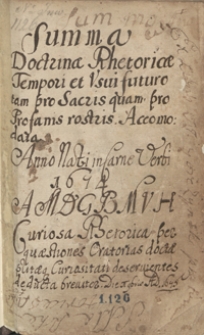 Summa
Doctrinæ Rhetoricæ
Tempori et Usui futuro
tam pro Sacris quam pro
Profanis rostris. Accomo-
data
Anno Nati in Carne Verbi
1674
A M D G B M V H
Curiosa Rhetorica per
Quæstiones Oratorias
Curiositati deservientes
1.126